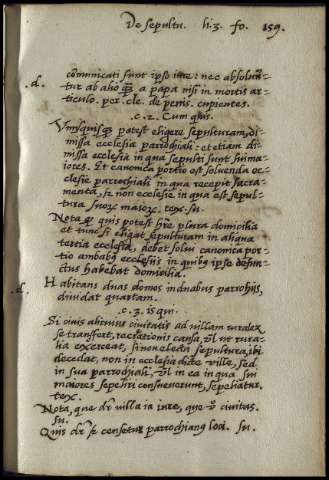 De sepultu. li.3. fo. 159.
.d. cōmunicati sunt ipso iure: nec absoluūn-
tur ab alio q̃ a papa nisi in mortis ar-
ticulo. per. cle. de penis. cupientes.
.c.2. Cum quis.
Vnusquisq; potest eligere sepulturam, di-
missa ecclesia parrochiali: et etiam di-
missa ecclesia in qua sepulti sunt sui ma-
iores. Et canonica portio est soluenda ec-
clesie parrochiali in qua recepit sacra-
menta, & non ecclesie in qua est sepul-
tura suorꝝ maiorꝝ. tex. su.
Nota q̃ quis potest hr̃e plura domicilia
et tunc si eligat sepulturam in aliqua
tertia ecclesia, debet solui canonica por-
tio ambabꝯ ecclesijs in quibꝯ ipse defun-
ctus habebat domicilia.
.d. Habitans duas domos in duabus parrohijs,
diuidat quartam.
.c.3. Is qui.
Si ciuis alicuius ciuitatis ad uillam ruralem
se transfert, recreationis causa, ul̃ ut rura-
lia exerceat, si non electa sepultura, ibi
decedat, non in ecclesia dicte uille, sed
in sua parrochiali, ul̃ in ea in qua sui
maiores sepeliri consueuerunt, sepeliatur.
tex.
Nota, que dr̃ uilla in iure, que ũ ciuitas.
su.
Quis dr̃ & censetur parrochianꝯ loci. su.